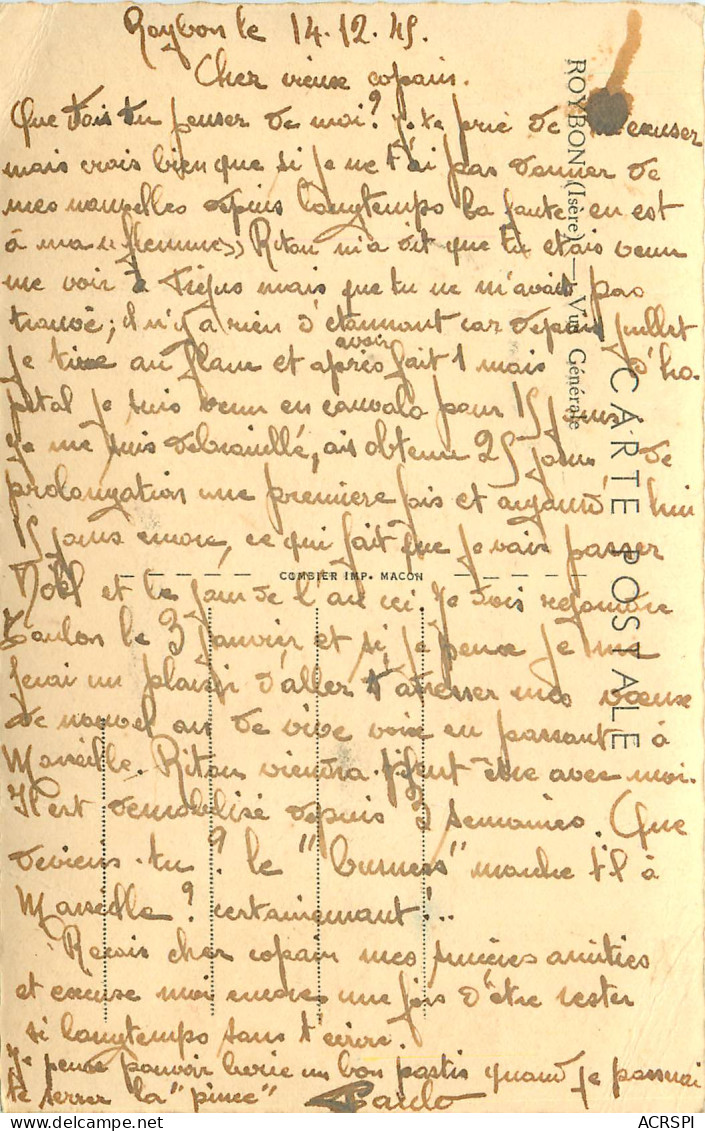 Roybon le 14.12.45.
Cher vieux copain.
Que dois tu penser de moi? je te prie de m'excuser
mais crois bien que si je ne t'ai pas donner de
mes nouvelles depuis longtemps la faute en est
à ma "flemme" Riton m'a dit que tu etais venu
me voir à mais que tu ne m'avais pas
trouvé; il n'y a rien d'etonnant car depuis juillet
je tire au flanc et après avoir fait 1 mois d'ho-
pital je suis venu en convalo pour 15 jours.
Je me suis debrouillé, ais obtenu 25 jours de
prolongation une premiere fois et aujourd'hui
15 jours encore, ce qui fait que je vais passer
Noël et le jour de l'an ici. Je dois rejoindre
Toulon le 3 janvier et si je peux je me
ferai un plaisir d'aller t'adresser mes vœux
de nouvel an de vive voix en passant à
Marseille. Riton viendra peut être avec moi.
Il est demobilisé depuis 3 semaines. Que
deviens-tu? le "business" marche t'il à
Marseille? certainement!..
Recois cher copain mes sincères amitiés
et excuse moi encore une fois d'être rester
si longtemps sans t'ecrire.
Je pense pouvoir boire un bon pastis quand je passerai
te serrer la "pince"
ROYBON (Isère) — Vue Générale
CARTE POSTALE
COMBIER IMP. MACON
ACRSPI